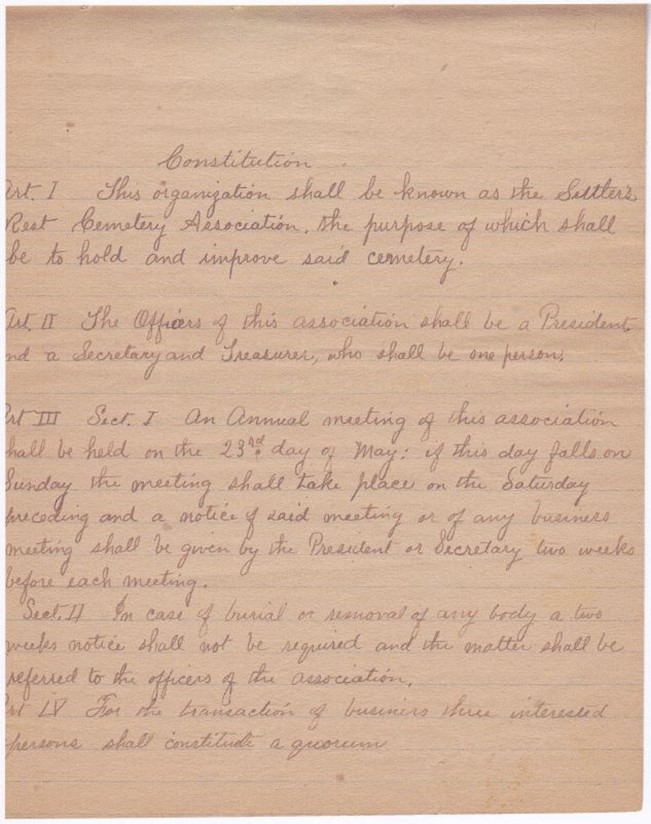 Constitution
Art. I This organization shall be known as the Settler's
Rest Cemetery Association. the purpose of which shall
be to hold and improve said cemetery.
Art. II The Officers of this association shall be a President
nd a Secretary and Treasurer, who shall be one person.
Art III Sect. I An Annual meeting of this association
hall be held on the 23rd day of May: if this day falls on
Sunday the meeting shall take place on the Saturday
preceding and a notice of said meeting or of any business
meeting shall be given by the President or Secretary two weeks
before each meeting.
Sect. II In case of burial or removal of any body a two
weeks notice shall not be required and the matter shall be
referred to the officers of the association.
Art IV For the transaction of business three interested
persons shall constitute a quorum